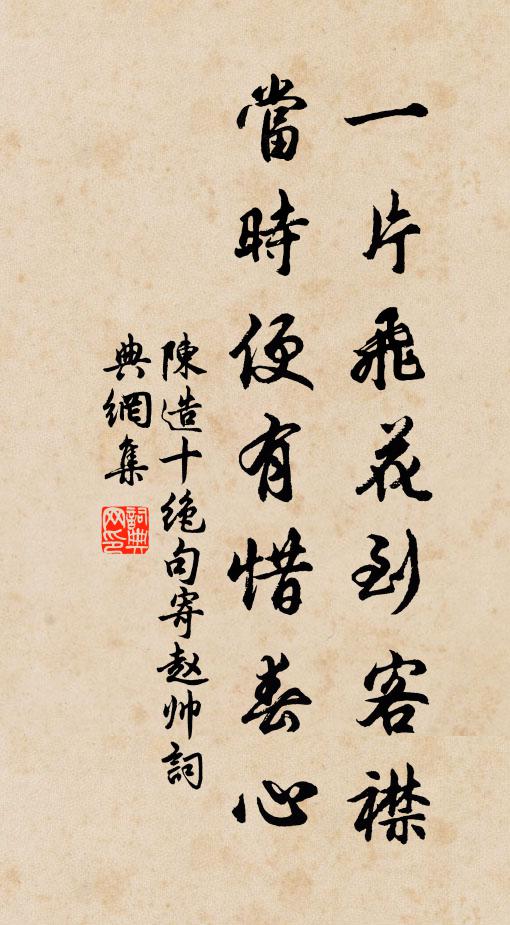 一片飛花到客襟
當時便有惜春心
陳造十絕句寄赵帅詞
典網集
詞典网印